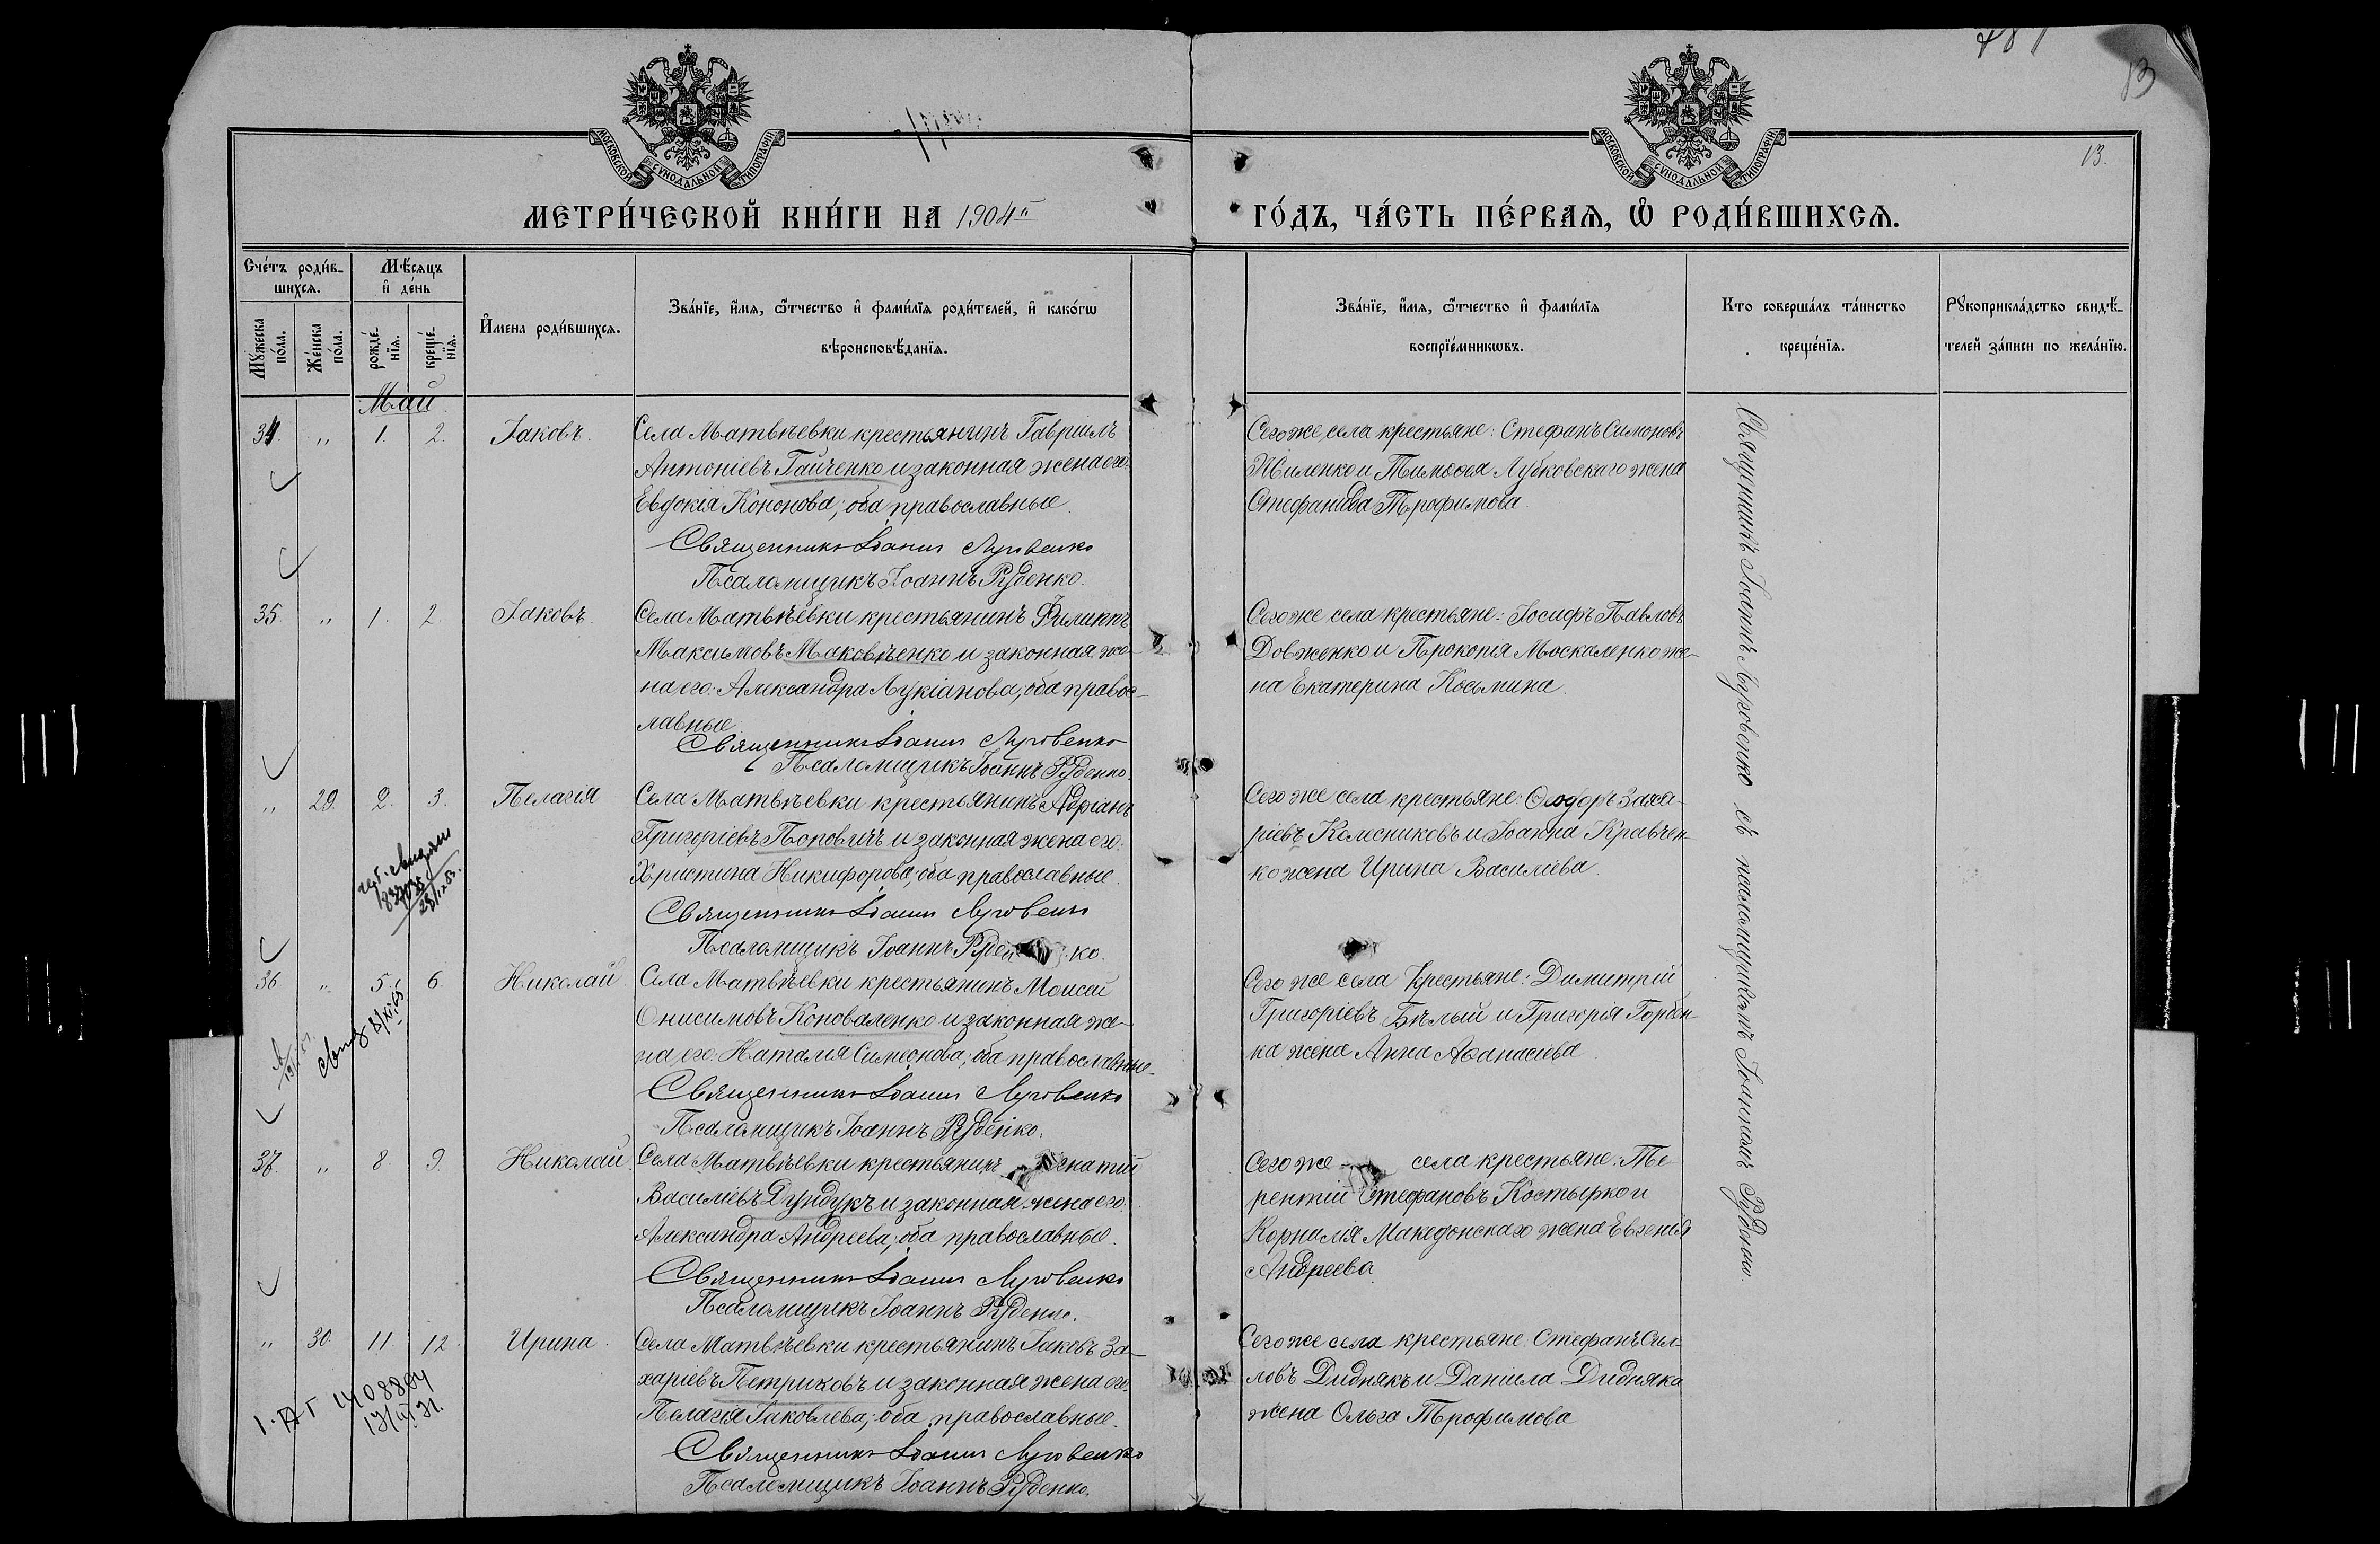 487
13
13.
МОСКОВСКОЙ СѴНОДАЛЬНОЙ ТИПОГРАФІИ
МОСКОВСКОЙ СѴНОДАЛЬНОЙ ТИПОГРАФІИ
МЕТРИ́ЧЕСКОЙ КНИ́ГИ НА 1904й ГО́ДЪ, ЧА́СТЬ ПЕ́РВАѦ, Ѡ РОДИ́ВШИХСѦ.
Сче́тъ роди́в-
шихсѧ.
Мꙋ́жеска по́ла.
Же́нска по́ла.
Мѣ́сѧцъ
и҆ де́нь
рожде́-
нїѧ.
креще́-
нїѧ.
И҆мена роди́вшихсѧ.
Зва́нїе, и҆́мѧ, ѻ҆́тчество и҆ фами́лїѧ роди́телей, и҆ како́гѡ
вѣроисповѣ́данїѧ.
Зва́нїе, и҆́мѧ, ѻ҆́тчество и҆ фами́лїѧ
воспрїе́мникѡвъ.
Кто соверша́лъ та́инство
креще́нїѧ.
Рꙋкоприкла́дство свидѣ́-
телей за́писи по жела́нїю.
Май
34. " 1. 2. Іаковъ.
Села Матвѣевки крестьянинъ Гавриилъ
Антоніевъ Гайченко и законная жена его:
Евдокія Кононова; оба православные.
Священникъ Іоаннъ Луговенко
Псаломщикъ Іоаннъ Руденко.
Сего же села крестьяне: Стефанъ Симоновъ
Жиленко и Тимоѳея Лубковскаго жена
Стефанида Трофимова.
35. " 1. 2. Іаковъ.
Села Матвѣевки крестьянинъ Филиппъ
Максимовъ Маковѣенко и законная же-
на его: Александра Лукіанова; оба правос-
лавные
Священникъ Іоаннъ Луговенко
Псаломщикъ Іоаннъ Руденко.
Сего же села крестьяне: Іосифъ Павловъ
Довженко и Прокопія Москаленко же-
на Екатерина Косьмина.
" 29. 2. 3. Пелагія
Села Матвѣевки крестьянинъ Адріанъ
Григоріевъ Поповичъ и законная жена его:
Христина Никифорова; оба православные.
Священникъ Іоаннъ Луговенко
Псаломщикъ Іоаннъ Руден ко.
Сего же села крестьяне: Ѳеодоръ Заха-
ріевъ Колесниковъ и Іоанна Кравчен-
ко жена Ирина Василіева.
36. " 5. 6. Николай
Села Матвѣевки крестьянинъ Моисей
Онисимовъ Коноваленко и законная же-
на его: Наталія Симеонова; оба православные.
Священникъ Іоаннъ Луговенко
Псаломщикъ Іоаннъ Руденко.
Сего же села крестьяне: Димитрій
Григоріевъ Бѣлый и Григорія Горбен-
ка жена Анна Аѳанасіева.
37. " 8. 9. Николай.
Села Матвѣевки крестьянинъ Игнатій
Василіевъ Дундукъ и законная жена его:
Александра Андреева; оба православные.
Священникъ Іоаннъ Луговенко
Псаломщикъ Іоаннъ Руденко.
Сего же села крестьяне: Те-
рентій Стефановъ Костырко и
Корнилія Македонскаго жена Евгенія
Андреева.
" 30. 11. 12. Ирина.
Села Матвѣевки крестьянинъ Іаковъ За-
харіевъ Петриковъ и законная жена его:
Пелагія Іаковлева; оба православные.
Священникъ Іоаннъ Луговенко
Псаломщикъ Іоаннъ Руденко.
Сего же села крестьяне: Стефанъ Сил-
ловъ Диднякъ и Даніила Дидняка
жена Ольга Трофимова
1408804
Священникъ Іоаннъ Луговенко съ псаломщикомъ Іоанномъ Руденко.